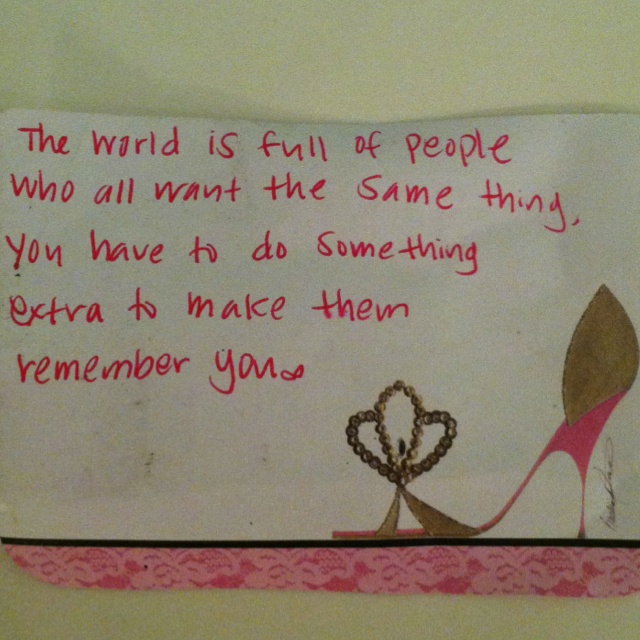 The world is full of people
who all want the same thing,
you have to do something
extra to make them
remember you.